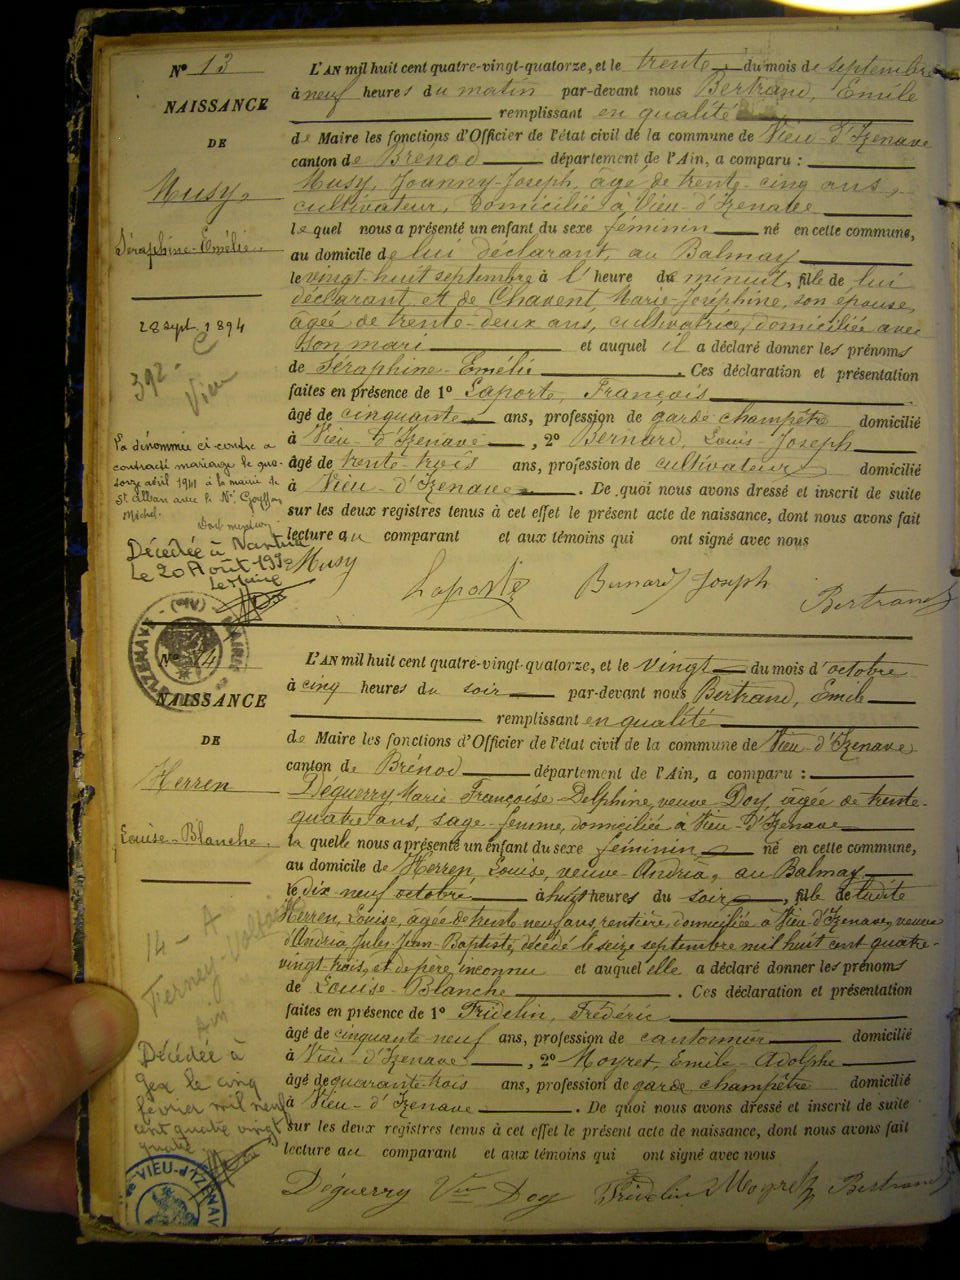 N° 13
NAISSANCE
DE
Musy,
Séraphine-Emélie
28 sept. 1894
392 -
C
Vieu
La dénommée ci-contre a
contracté mariage le qua-
torze avril 1911 à la mairie de
St Alban avec le Nr Goyffon
Michel.
Dont mention
Décédée à Nantua
Le 20 Août 19
Le Maire
L'AN mil huit cent quatre-vingt-quatorze, et le trente du mois de septembre
à neuf heures du matin par-devant nous Bertrand, Emile
remplissant en qualité
de Maire les fonctions d'Officier de l'état civil de la commune de Vieu-d'Izenave
canton de Brénod département de l'Ain, a comparu :
Musy, Joanny-Joseph, âgé de trente-cinq ans,
cultivateur, domicilié à Vieu-d'Izenave
lequel nous a présenté un enfant du sexe féminin né en cette commune,
au domicile de lui déclarant, au Balmay
le vingt huit septembre à l' heure de minuit, fille de lui
déclarant et de Chavent Marie-Joséphine, son épouse,
âgée de trente-deux ans, cultivatrice, domiciliée avec
son mari et auquel il a déclaré donner les prénoms
de Séraphine-Emélie. Ces déclaration et présentation
faites en présence de 1° Laporte, François
âgé de cinquante ans, profession de garde champêtre domicilié
à Vieu-d'Izenave, 2° Bernard, Louis-Joseph
âgé de trente-trois ans, profession de cultivateur domicilié
à Vieu-d'Izenave. De quoi nous avons dressé et inscrit de suite
sur les deux registres tenus à cet effet le présent acte de naissance, dont nous avons fait
lecture au comparant et aux témoins qui ont signé avec nous
Musy Laporte Bernard Joseph Bertrand
MAIRIE
D'IZENAVE
N° 14
NAISSANCE
DE
Herren
Louise-Blanche.
14 - A
Ferney-Voltaire
Ain
Décédée à
Gex le cinq
février mil neuf
cent quatre vingt
quatre
VIEU-d'IZENAVE
L'AN mil huit cent quatre-vingt-quatorze, et le vingt du mois d'octobre
à cinq heures du soir par-devant nous Bertrand, Emile
remplissant en qualité
de Maire les fonctions d'Officier de l'état civil de la commune de Vieu-d'Izenave
canton de Brénod département de l'Ain, a comparu :
Déguerry Marie Françoise Delphine, veuve Doy, âgée de trente-
quatre ans, sage-femme, domiciliée à Vieu-d'Izenave
laquelle nous a présenté un enfant du sexe féminin né en cette commune,
au domicile de Herren, Louise, veuve Andria, au Balmay
le dix-neuf octobre à huit heures du soir, fille de ladite
Herren, Louise, agée de trente neuf ans, rentière, domiciliée à Vieu-d'Izenave, veuve
d'Andria, Jules Jean-Baptiste, décédé le seize septembre mil huit cent quatre-
vingt-trois, et de père inconnu et auquel elle a déclaré donner les prénoms
de Louise-Blanche. Ces déclaration et présentation
faites en présence de 1° Fridelin, Frédéric
âgé de cinquante neuf ans, profession de cantonnier domicilié
à Vieu-d'Izenave, 2° Moyret, Emile-Adolphe
âgé de quarante-trois ans, profession de garde champêtre domicilié
à Vieu-d'Izenave. De quoi nous avons dressé et inscrit de suite
sur les deux registres tenus à cet effet le présent acte de naissance, dont nous avons fait
lecture au comparant et aux témoins qui ont signé avec nous
Déguerry Vve Doy Fridelin Moyret Bertrand